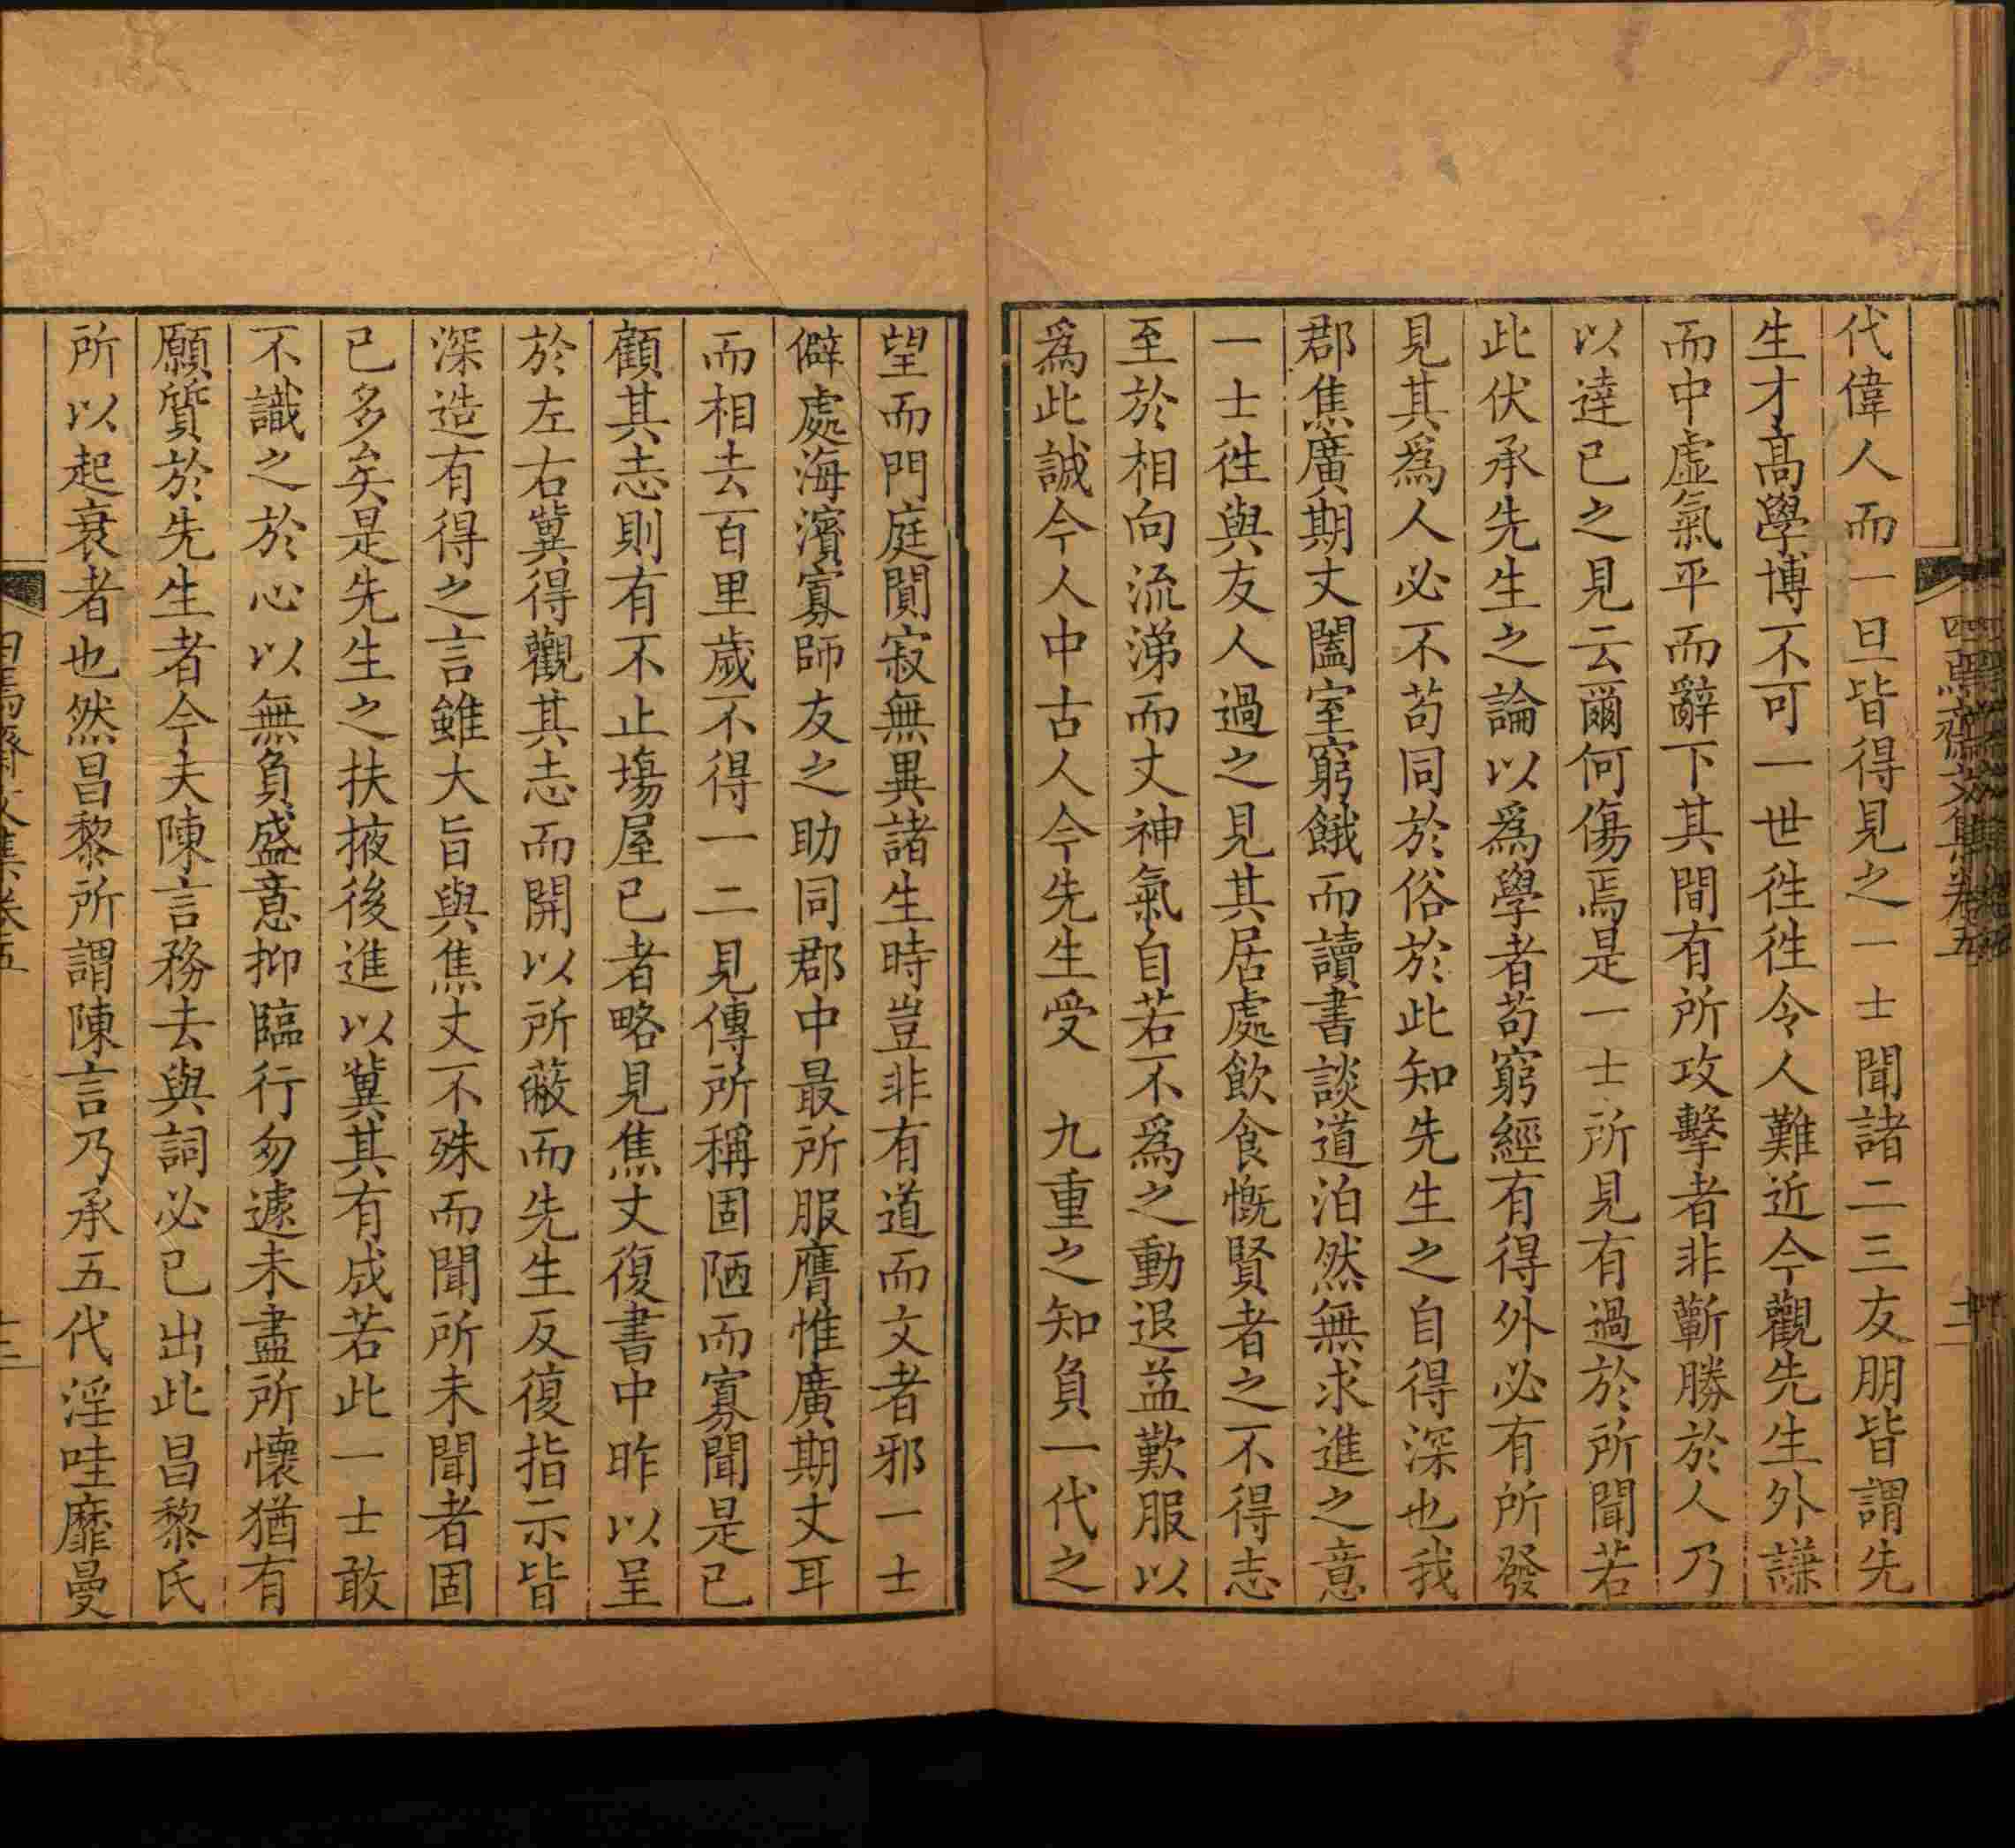 代偉人而一旦皆得見之一士聞諸二三友朋皆謂先
生才高學博不可一世徃徃令人難近今觀先生外謙
而中虛氣平而辭下其間有所攻擊者非蘄勝於人乃
以達已之見云爾何傷焉是一士所見有過於所聞若
此伏承先生之論以爲學者苟窮經有得外必有所發
見其爲人必不苟同於俗於此知先生之自得深也我
郡焦廣期丈闔室窮餓而讀書談道泊然無求進之意
一士徃與友人過之見其居處飲食慨賢者之不得志
至於相向流涕而丈神氣自若不爲之動退益歎服以
爲此誠今人中古人今先生受　九重之知負一代之
望而門庭閴寂無異諸生時豈非有道而文者邪一士
僻處海濱寡師友之助同郡中最所服膺惟廣期丈耳
而相去百里歲不得一二見傳所稱固陋而寡聞是已
顧其志則有不止塲屋已者略見焦丈復書中昨以呈
於左右兾得觀其志而開以所蔽而先生反復指示皆
深造有得之言雖大旨與焦丈不殊而聞所未聞者固
已多矣是先生之扶掖後進以兾其有成若此一士敢
不識之於心以無負盛意抑臨行匆遽未盡所懷猶有
願質於先生者今夫陳言務去與詞必已出此昌黎氏
所以起衰者也然昌黎所謂陳言乃承五代淫哇靡曼
四焉齋文集卷五